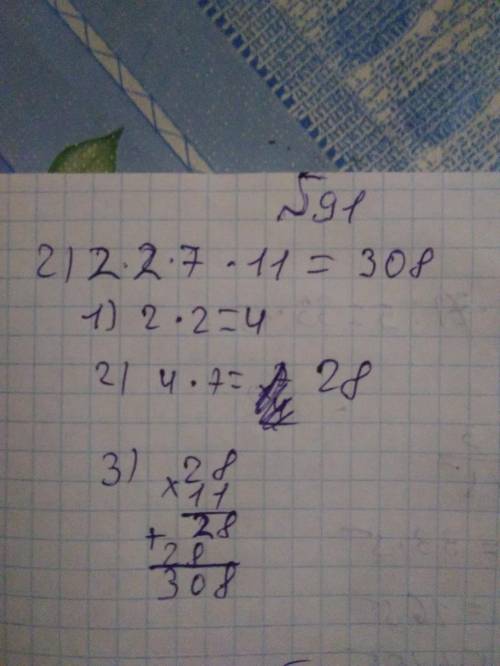 №91
2) 2·2·7·11=308
1) 2·2=4
2) 4·7= 28
3) 28
×11
28
+28
308